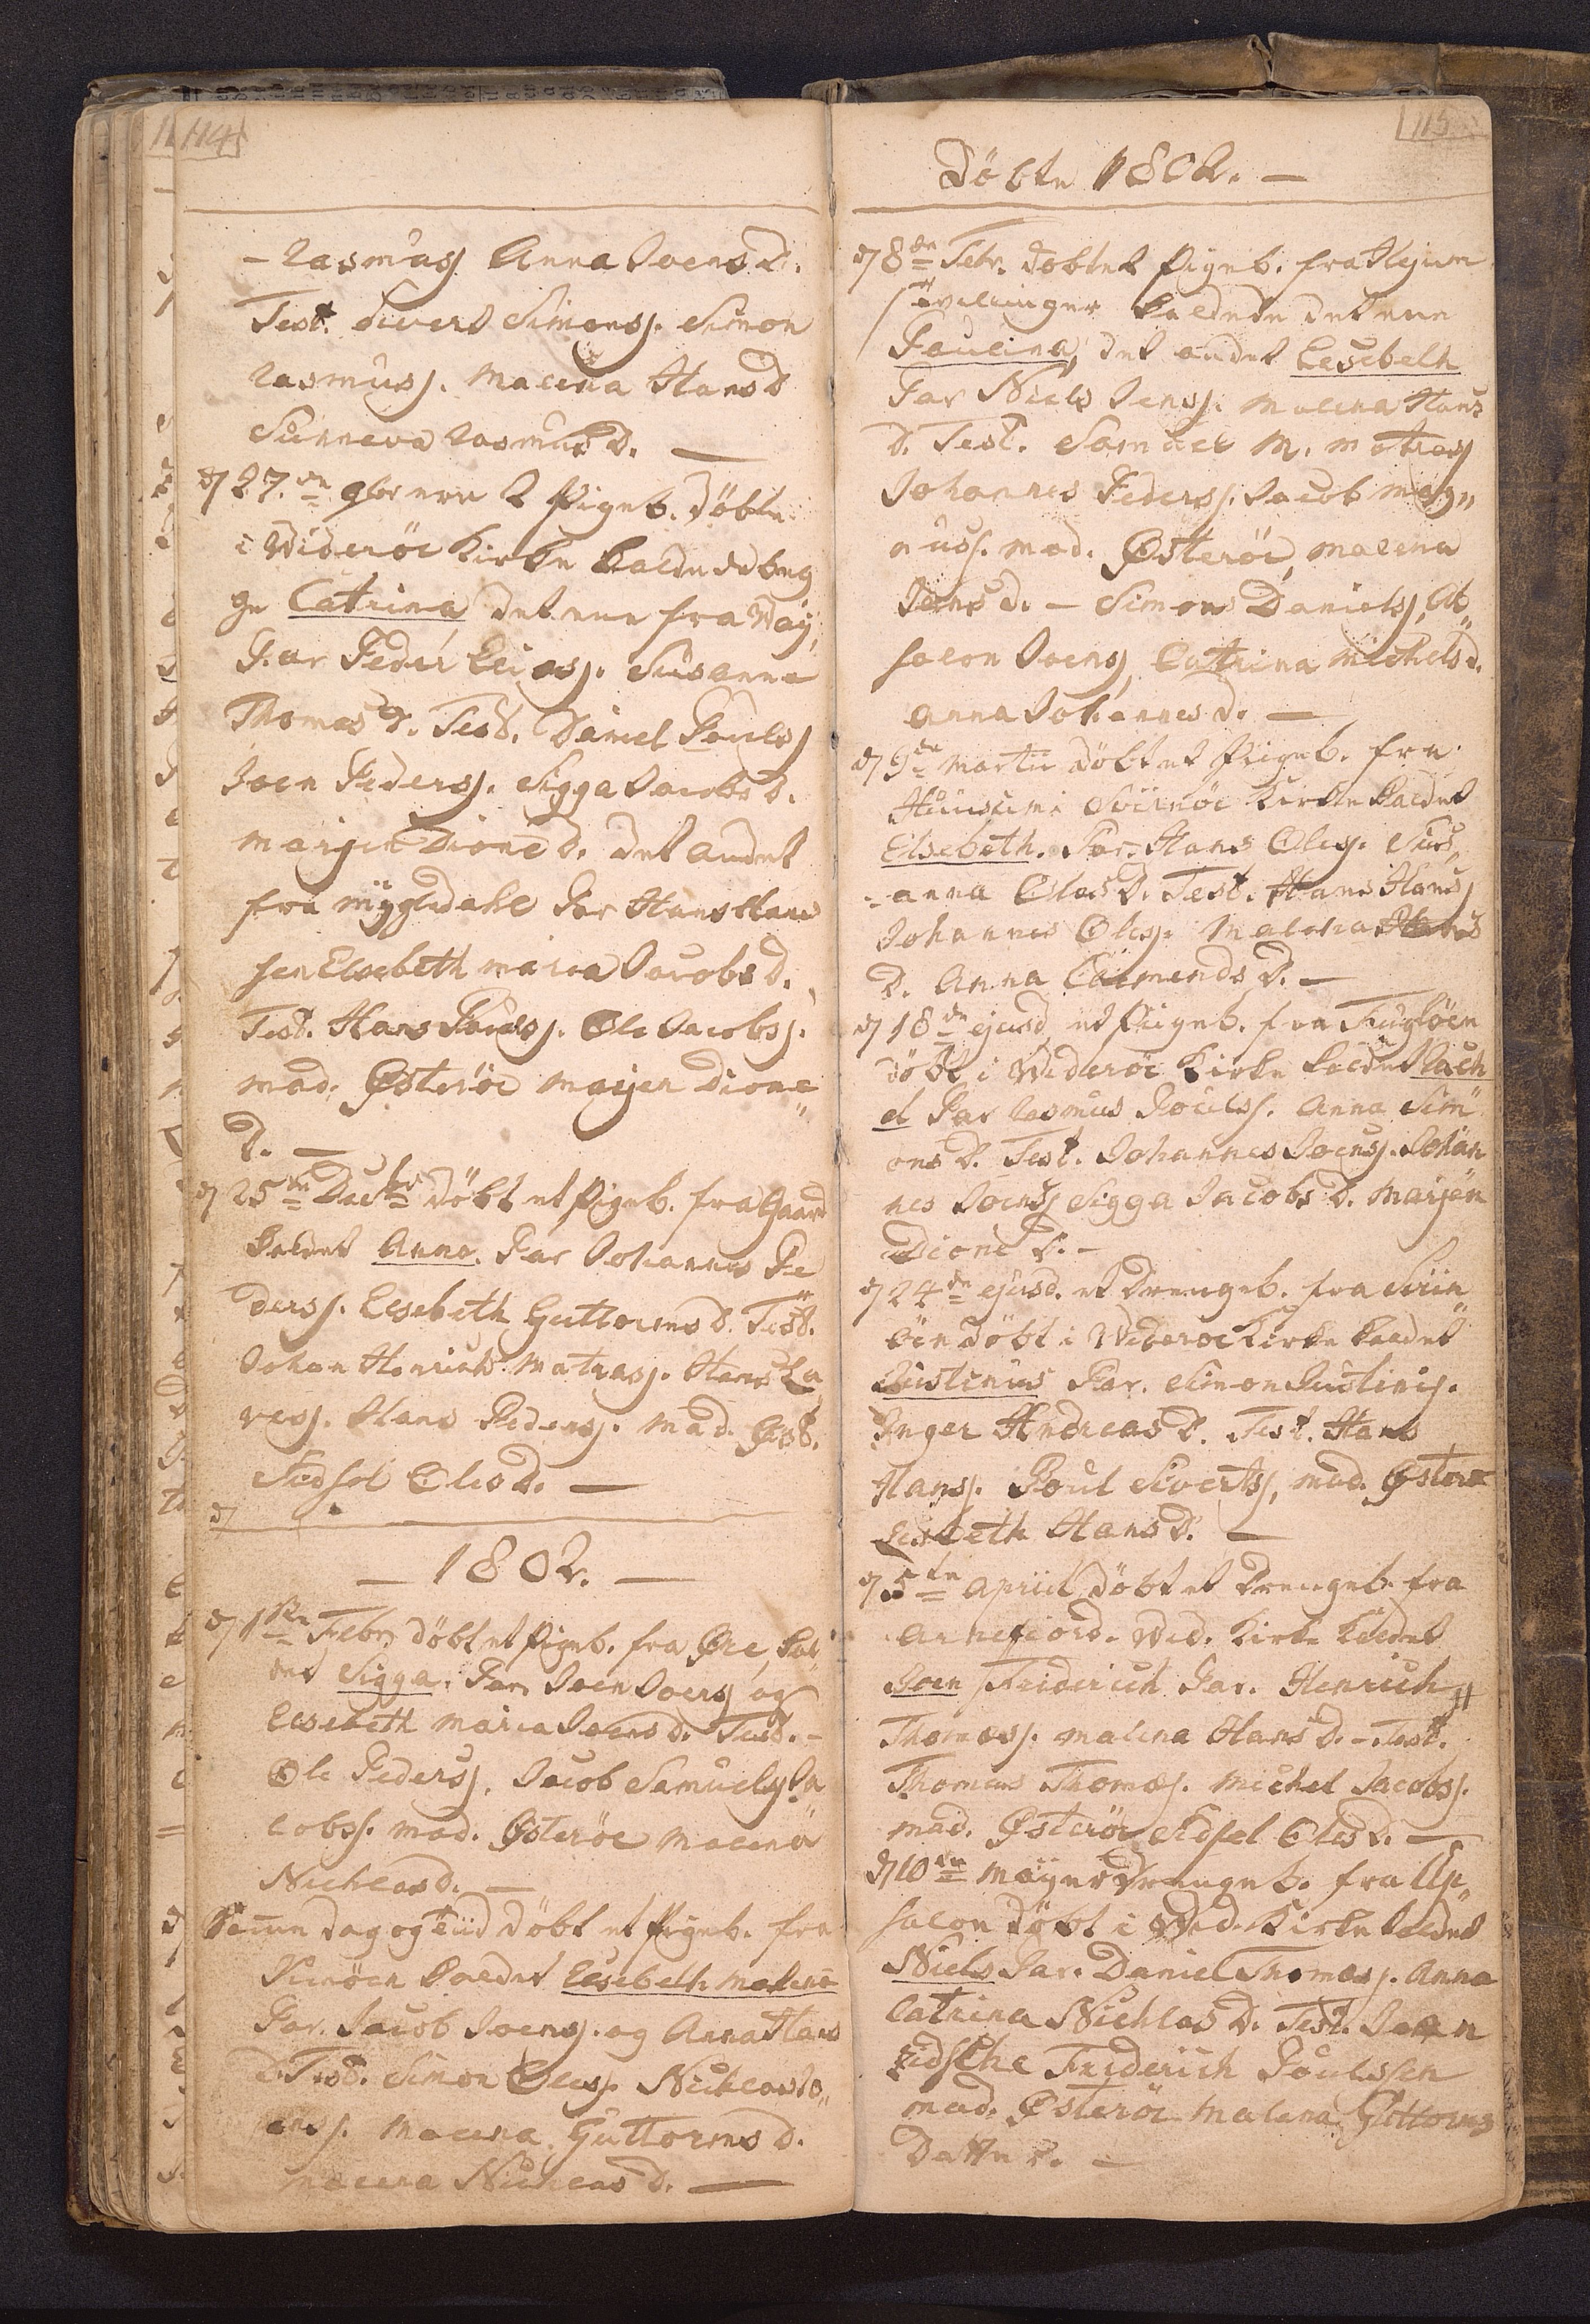 114
- Rasmusj Anna Joens D.
Test. Sivert Simonsj. Simon
Rasmusj. Malena Hans D
Sunneva Rasmus D. —
d 27.de 9br 2 Pigeb. döbte
i Wideröe Kirke kaldede beg
ge Catrina det ene fra Waÿ,
Par Peder Eliasj. Susanna
Thomas D. Test. Daniel Poulsj
Joen Pedersj. Sigga Jacobs D.
Marjen Dione D. det andet
fra Mÿgledahl Par Hans Hans
sen Elsebeth Maria Jacobs D.
Test. Hans Poulsj. Ole Jacobsj.
Mad. Østeröe Marjen Dione
D. —
d 25de Decbr döbt et Pigeb. fra Gaard
kaldet Anna. Par Johannes Pe
dersj. Elsebeth Guttorms D. Test.
Johan Henrich Matrasj. Hans La
resj. Hans Pedersj. Mad. Øst.
Sidsel Oles D. —
d
— 1802. —
d 1ste Febr. döbt et Pigeb. fra Øre, kal
det Sigga. Par Joen Joensj og
Elsebeth Maria Joens D. Test. -
Ole Pedersj. Jacob Samuelsj Ja
cobsj. Mad. Østeröe Malena
Nichlas D. —
Samme dag og tiid döbt et Pigeb. fra
Kunöen kaldet Elsebeth Malena
Par. Jacob Joensj. og Anna Hans
D. Test. Simon Olesj. Nichlas Jo„
ensj. Malena Guttorms D.
Malena Nichlas D. —
115
Döbte 1802. —
d 8de Febr. döbtet Pigeb. fra Skjem
tvillinger kaldede det ene
Paulina, det andet Elsebeth
Par Niels Jensj. Malena Hans
D. Test. Samuel M. Matrasj
Johannes Pedersj. Jacob Mag„
nusj. Mad. Østeröe, Malena
Jens d. — Simon Danielsj, Ab„
salon Joensj, Catrina Michels d.
Anna Johannes d. —
d 9de Martii döbt et Pigeb. fra
Huusum i Sviinöe Kirke kaldet
Elsebeth. Par. Hans Olesj. Sus„
anna Olas D. Test. Hans Hansj
Johannes Olesj. Malena Hans
D. Anna Edmunds D. —
d 18de ejusd et Pigeb. fra Fuglöen
döbt i Wideröe Kirke kaldet Rach
el Par Rasmus Poulsj. Anna Sim
ons D. Test. Johannes Joensj. Johan
nes Joensj Sigga Jacobs D. Marjen
Dione D. —
d 24de ejusd. et Drengeb. fra Sviin
öen döbt i Wideröe Kirke kaldet
Justinus Par. Simon Justinsj.
Inger Andreas D. Test. Hans
Hansj. Poul Sivertsj, Mad. Østeröe
Elsebeth Hans D. —
d 5te Apriil döbt et Drengeb. fra
Arnefiord. Wid. Kirke kaldet
Joen Friderich Par. Henrich
Thomasj. Malena Hans D. - Test.
Thomas Thomasj. Michel Jacobsj.
Mad. Østeröe Sidsel Oles D. —
d 10de Maÿ et Drengeb. fra Up„
salon döbt i Wid. Kirke kaldet
Niels Par. Daniel Thomasj. Anna
Catrina Nichlas D. Test. Joen
Eidsche Friderich Poulssen
Mad. Østeröe Malena Gottorms
Datter. —